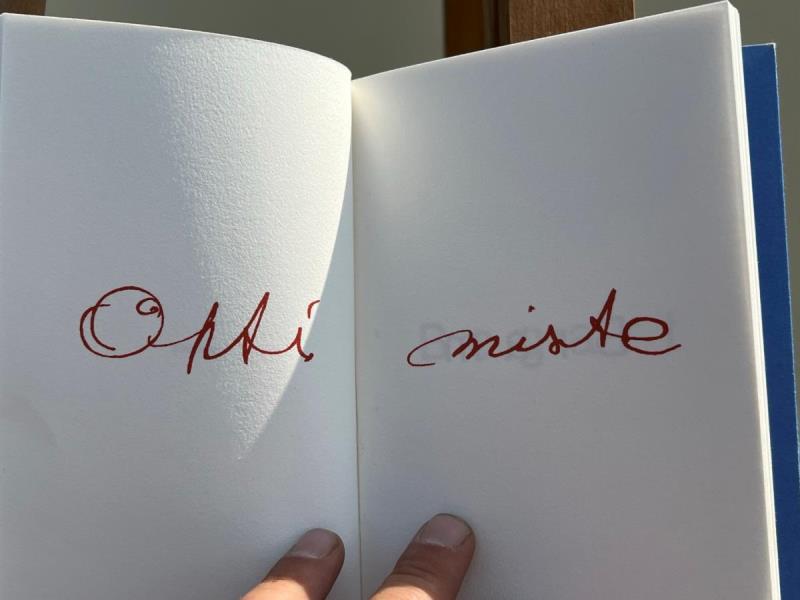 Opti miste